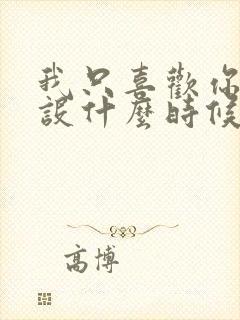 我只喜歡你
設什麼時候
高博